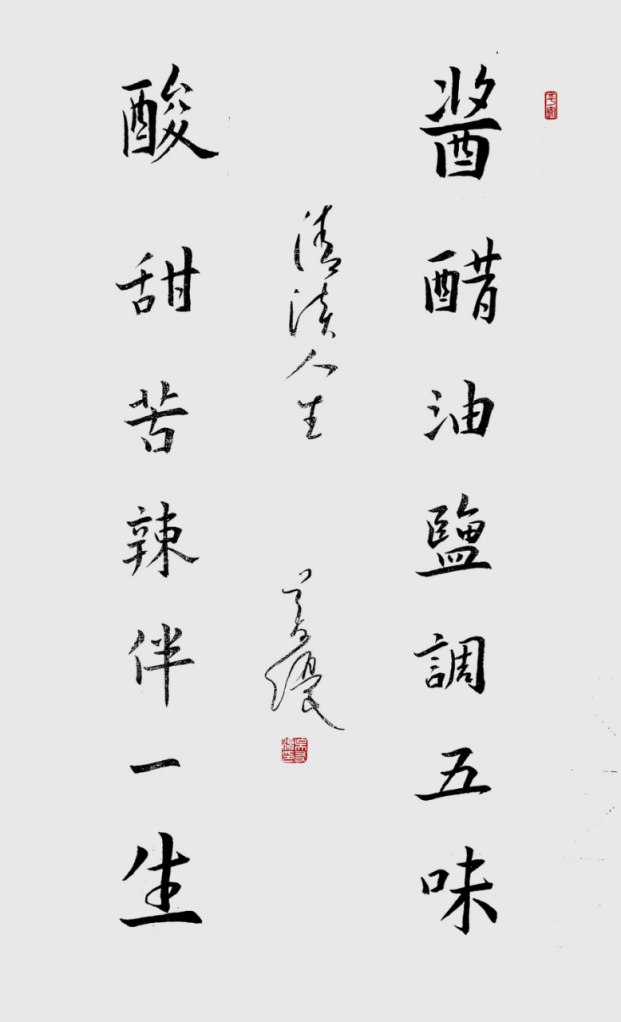 醬醋油鹽調五味
酸甜苦辣伴一生
清淡人生